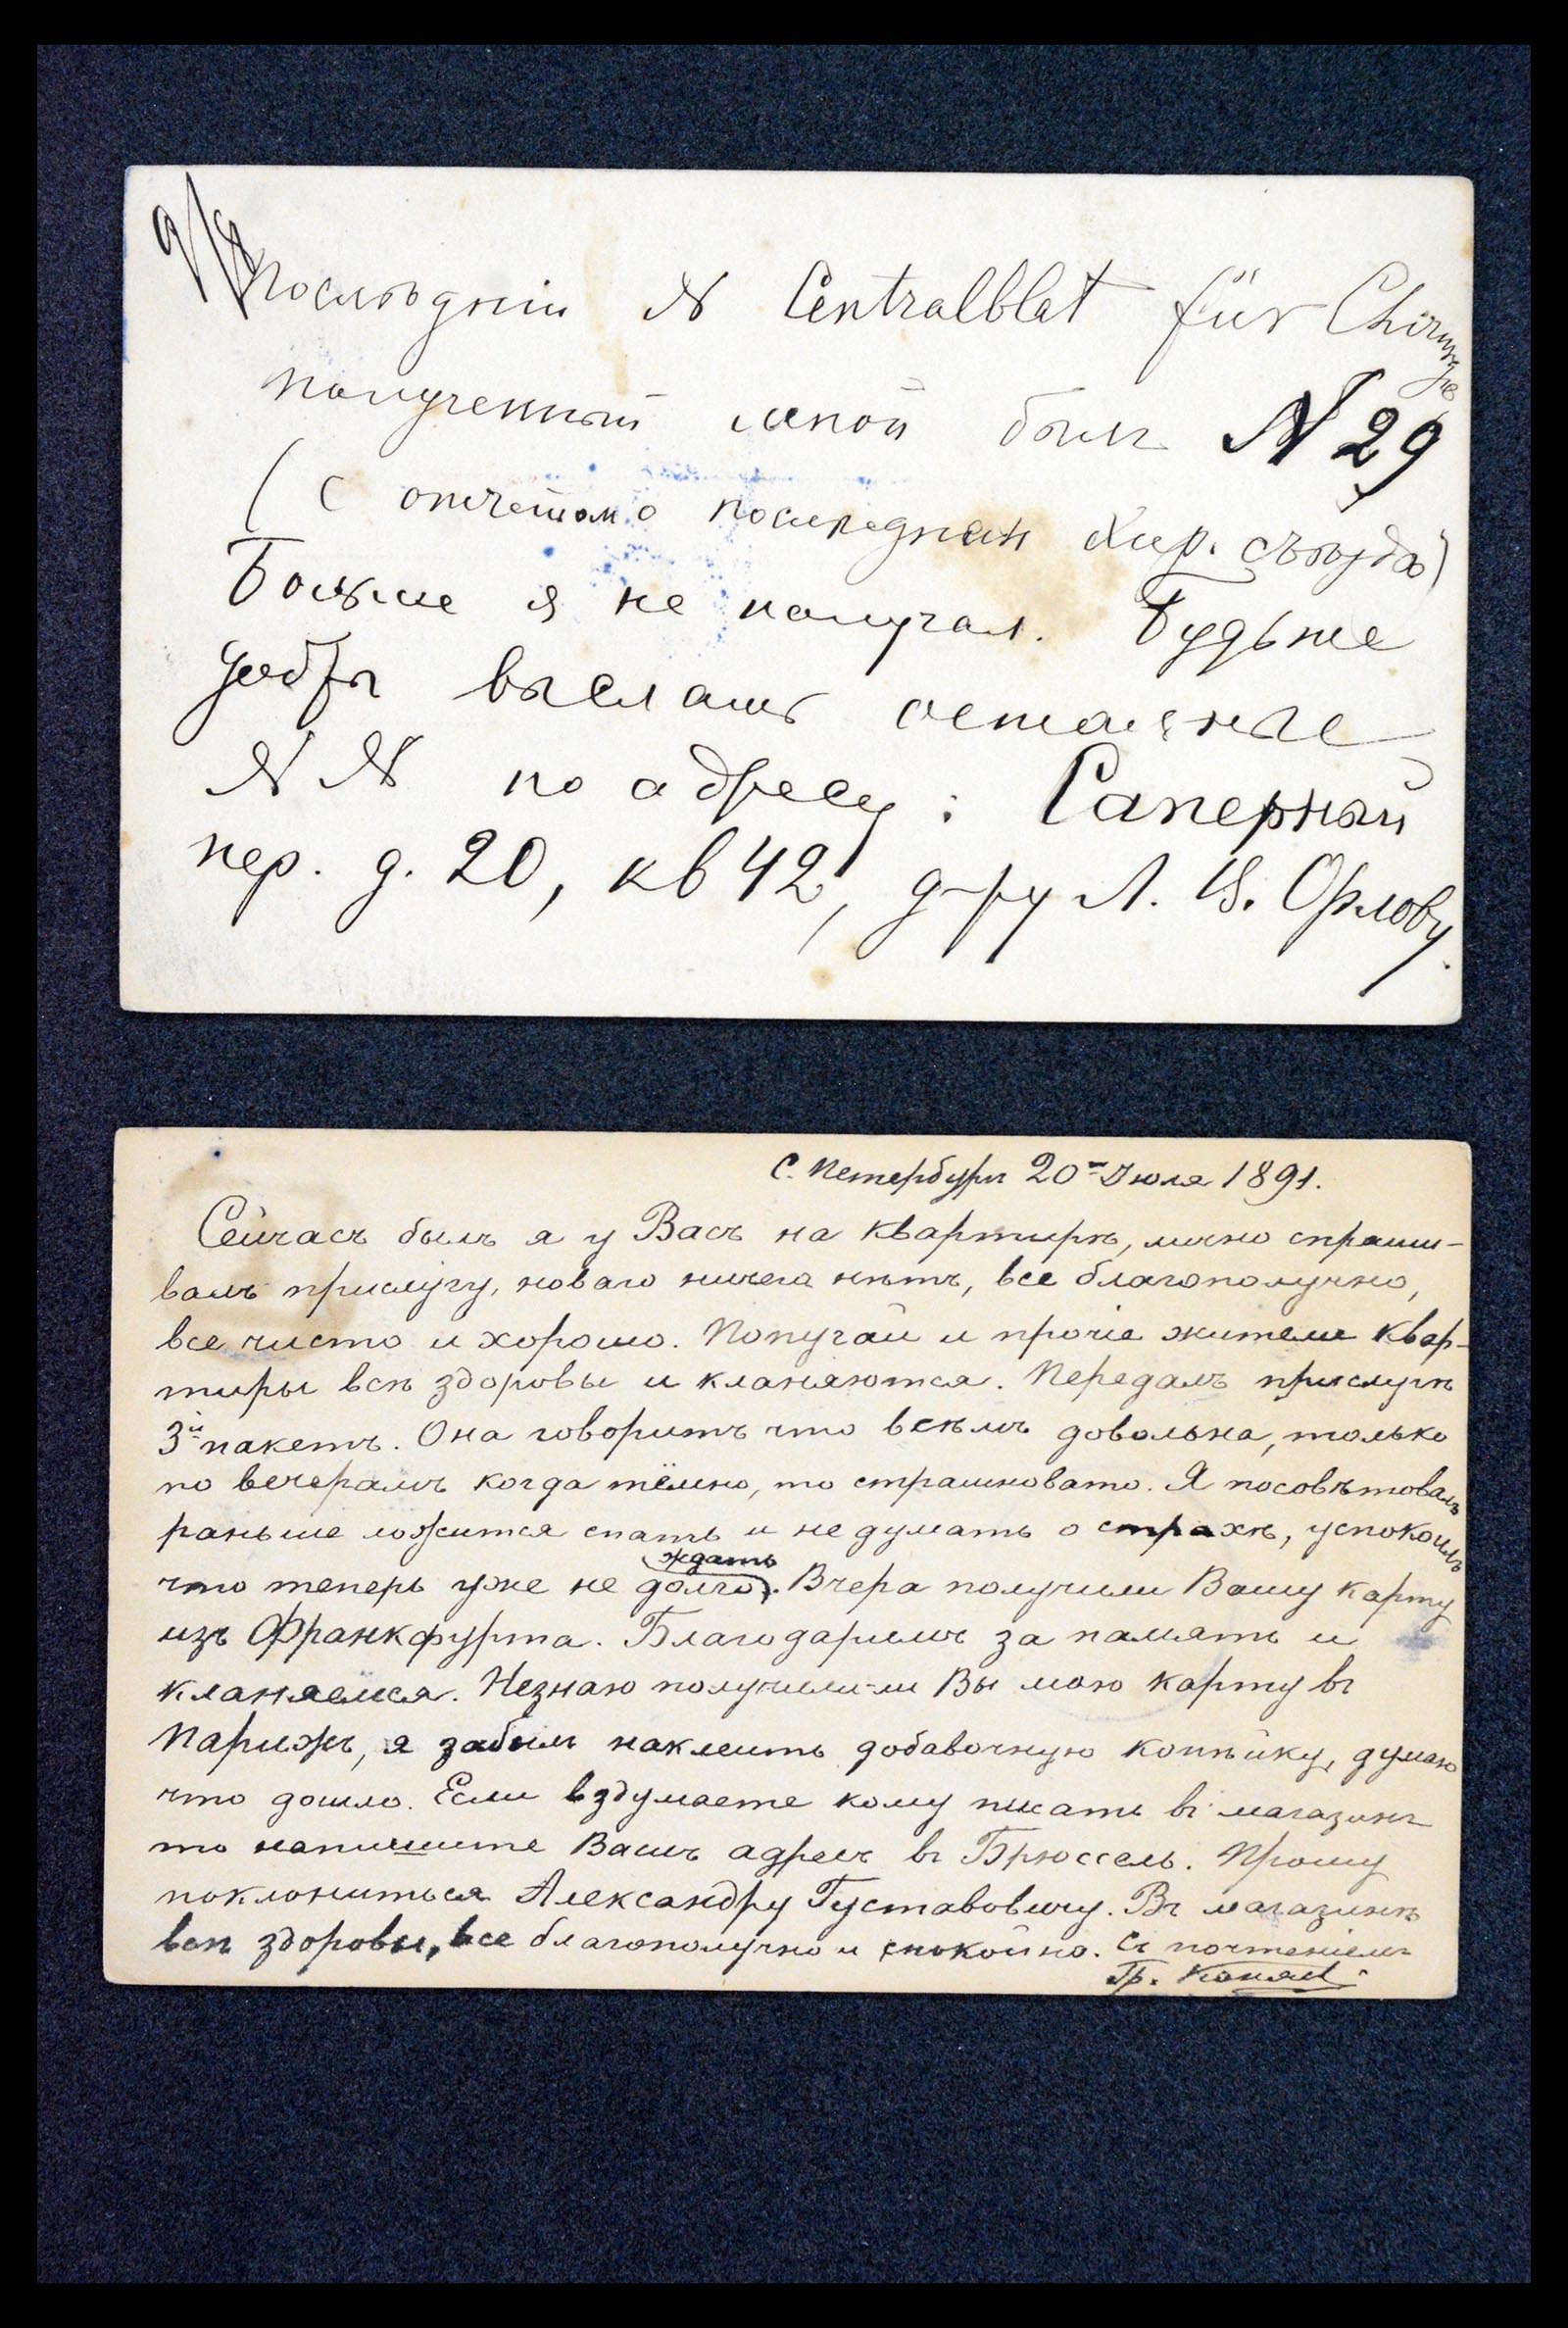 Послѣднiй № Centralblat für Chirurgie
полученный мной былъ № 29
(с отчетом о последнем Хир. съѣзде)
Больше я не получал. Будьте
добры выслать остальные
№№ по адресу: Саперный
пер. д. 20, кв 42, д-ру Л. В. Орлову.
С. Петербургъ 20го Июля 1891.
Сейчасъ былъ я у Васъ на квартирѣ, лично спраши-
валъ прислугу, новаго ничего нѣтъ, все благополучно,
все чисто и хорошо. Попугай и прочіе жители квар-
тиры всѣ здоровы и кланяются. Передалъ прислугѣ
3й пакетъ. Она говоритъ что всѣмъ довольна, только
по вечерамъ когда тёмно, то страшновато. Я посовѣтовалъ
раньше ложится спать и не думать о страхѣ, успокоилъ
что теперь уже не долго ждать. Вчера получили Вашу карту
изъ Франкфурта. Благодаримъ за память и
кланяемся. Незнаю получили-ли Вы мою карту въ
Парижъ, я забылъ наклеить добавочную копѣйку, думаю
что дошло. Если вздумаете кому писать въ магазинъ
то напишите Вашъ адресъ въ Брюссель. Прошу
поклониться Александру Густавовичу. Въ магазинѣ
всѣ здоровы, все благополучно и спокойно. Съ почтеніемъ
Гр.